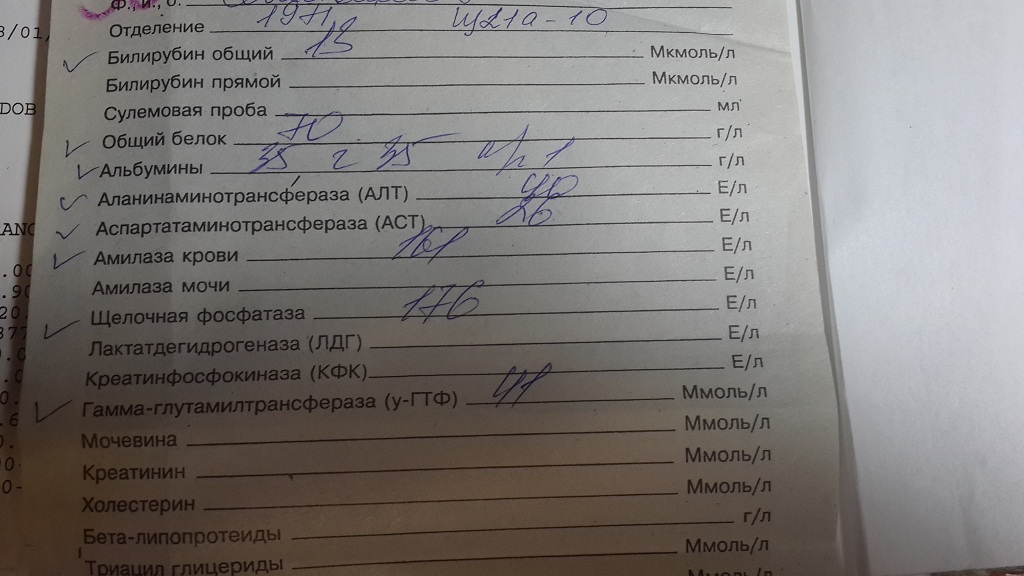 Ф., И., О.
Отделение 1971
Билирубин общий 13 Мкмоль/л
Билирубин прямой Мкмоль/л
Сулемовая проба мл
Общий белок 70 г/л
Альбумины 35 г 35 1 г/л
Аланинаминотрансфераза (АЛТ) Е/л
Аспартатаминотрансфераза (АСТ) 26 Е/л
Амилаза крови 161 Е/л
Амилаза мочи Е/л
Щелочная фосфатаза 176 Е/л
Лактатдегидрогеназа (ЛДГ) Е/л
Креатинфосфокиназа (КФК) Е/л
Гамма-глутамилтрансфераза (у-ГТФ) 41 Ммоль/л
Мочевина Ммоль/л
Креатинин Ммоль/л
Холестерин Ммоль/л
Бета-липопротеиды г/л
Триацил глицериды Ммоль/л